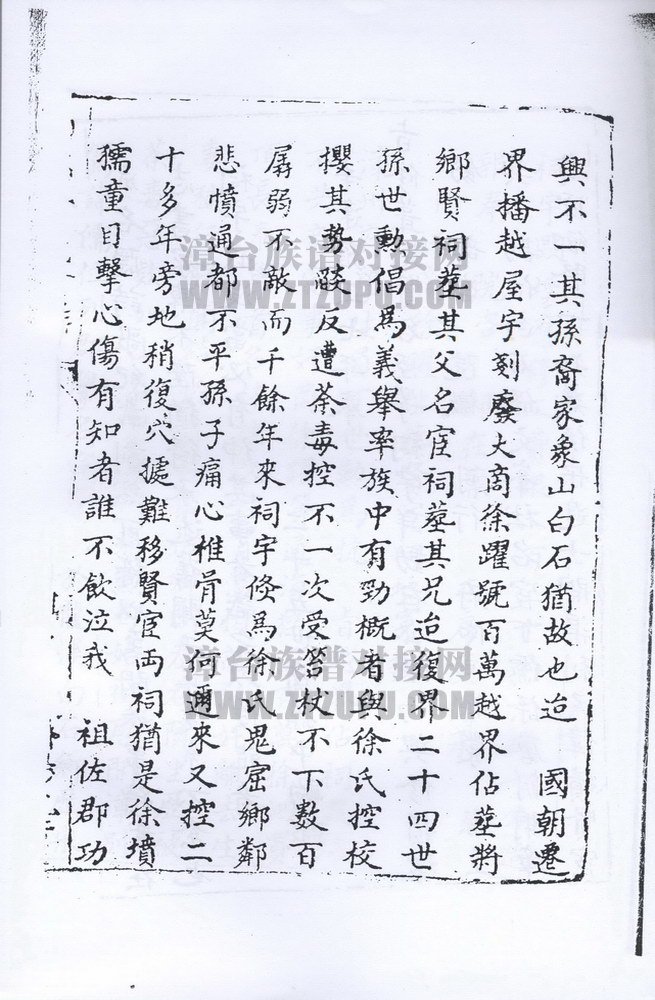 興不一其孫裔家象山白石猶故也迨 國朝遷
界播越屋宇剗廢大商徐躍號百萬越界佔塟將
鄉賢祠塟其父名宦祠塟其兄迨復界二十四世
孫世勳倡為義舉率族中有勁概者與徐氏控校
攖其勢燄反遭荼毒控不一次受笞杖不下数百
孱弱不敵而千餘年來祠宇倐為徐氏鬼窟鄉鄰
悲憤通都不平孫子痛心椎骨莫何邇來又控二
十多年旁地稍復穴據難移賢宦両祠猶是徐墳
孺童目擊心傷有知者誰不飲泣我 祖佐郡功
漳台族谱对接网
WWW.ZTZUPU.COM
漳台族谱对接网
WWW.ZTZUPU.COM